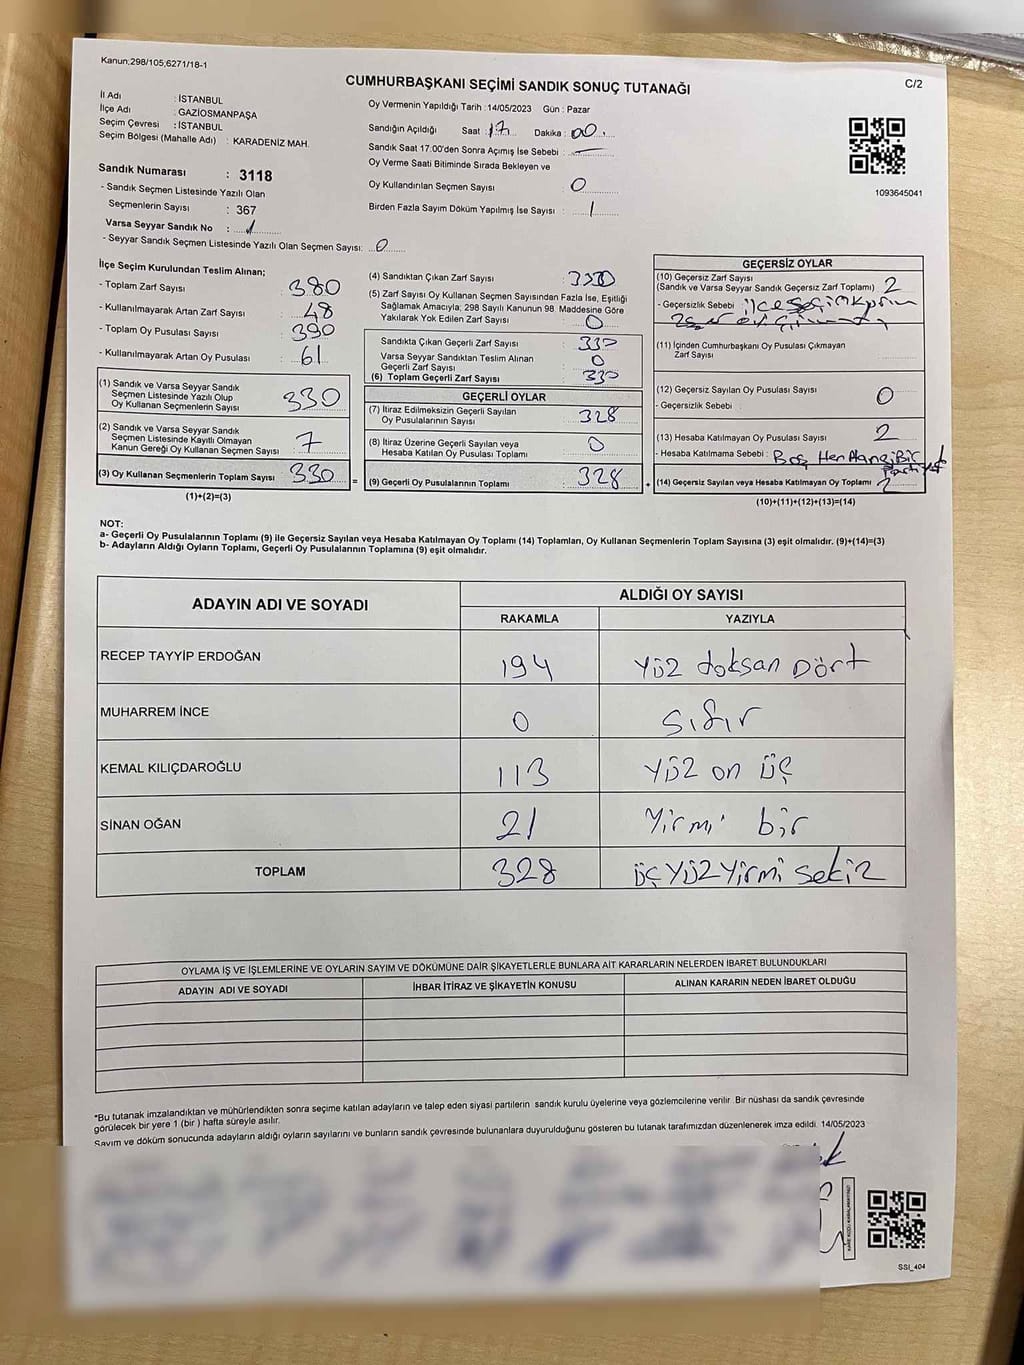 Kanun;298/105,6271/18-1
C/2
CUMHURBAŞKANI SEÇİMİ SANDIK SONUÇ TUTANAĞI
İl Adı : İSTANBUL
İlçe Adı : GAZİOSMANPAŞA
Seçim Çevresi : İSTANBUL
Seçim Bölgesi (Mahalle Adı) : KARADENİZ MAH.
Sandık Numarası : 3118
- Sandık Seçmen Listesinde Yazılı Olan
Seçmenlerin Sayısı : 367
Varsa Seyyar Sandık No :
- Seyyar Sandık Seçmen Listesinde Yazılı Olan Seçmen Sayısı: 0
Oy Vermenin Yapıldığı Tarih :14/05/2023 Gün : Pazar
Sandığın Açıldığı Saat : 17 Dakika : 00
Sandık Saat 17:00'den Sonra Açımış İse Sebebi :
Oy Verme Saati Bitiminde Sırada Bekleyen ve
Oy Kullandırılan Seçmen Sayısı : 0
Birden Fazla Sayım Döküm Yapılmış İse Sayısı : 1
1093645041
İlçe Seçim Kurulundan Teslim Alınan;
- Toplam Zarf Sayısı : 380
- Kullanılmayarak Artan Zarf Sayısı : 48
- Toplam Oy Pusulası Sayısı : 390
- Kullanılmayarak Artan Oy Pusulası : 61
(1) Sandık ve Varsa Seyyar Sandık
Seçmen Listesinde Yazılı Olup
Oy Kullanan Seçmenlerin Sayısı : 330
(2) Sandık ve Varsa Seyyar Sandık
Seçmen Listesinde Kayıtlı Olmayan
Kanun Gereği Oy Kullanan Seçmen Sayısı : 7
(3) Oy Kullanan Seçmenlerin Toplam Sayısı : 330
(1)+(2)=(3)
(4) Sandıktan Çıkan Zarf Sayısı : 330
(5) Zarf Sayısı Oy Kullanan Seçmen Sayısından Fazla İse, Eşitliği
Sağlamak Amacıyla; 298 Sayılı Kanunun 98. Maddesine Göre
Yakılarak Yok Edilen Zarf Sayısı : 0
Sandıkta Çıkan Geçerli Zarf Sayısı : 330
Varsa Seyyar Sandıktan Teslim Alınan
Geçerli Zarf Sayısı : 0
(6) Toplam Geçerli Zarf Sayısı : 330
GEÇERLİ OYLAR
(7) İtiraz Edilmeksizin Geçerli Sayılan
Oy Pusulalarının Sayısı : 328
(8) İtiraz Üzerine Geçerli Sayılan veya
Hesaba Katılan Oy Pusulası Toplamı : 0
(9) Geçerli Oy Pusulalarının Toplamı : 328
GEÇERSİZ OYLAR
(10) Geçersiz Zarf Sayısı
(Sandık ve Varsa Seyyar Sandık Geçersiz Zarf Toplamı) : 2
- Geçersizlik Sebebi :
(11) İçinden Cumhurbaşkanı Oy Pusulası Çıkmayan
Zarf Sayısı :
(12) Geçersiz Sayılan Oy Pusulası Sayısı : 0
- Geçersizlik Sebebi :
(13) Hesaba Katılmayan Oy Pusulası Sayısı : 2
- Hesaba Katılmama Sebebi : Boş Herhangi Bir
(14) Geçersiz Sayılan veya Hesaba Katılmayan Oy Toplamı : 2
(10)+(11)+(12)+(13)=(14)
NOT:
a- Geçerli Oy Pusulalarının Toplamı (9) ile Geçersiz Sayılan veya Hesaba Katılmayan Oy Toplamı (14) Toplamları, Oy Kullanan Seçmenlerin Toplam Sayısına (3) eşit olmalıdır. (9)+(14)=(3)
b- Adayların Aldığı Oyların Toplamı, Geçerli Oy Pusulalarının Toplamına (9) eşit olmalıdır.
ADAYIN ADI VE SOYADI
ALDIĞI OY SAYISI
RAKAMLA YAZIYLA
RECEP TAYYİP ERDOĞAN 194 Yüz doksan Dört
MUHARREM İNCE 0 Sıfır
KEMAL KILIÇDAROĞLU 113 Yüz on üç
SİNAN OĞAN 21 Yirmi bir
TOPLAM 328 üç Yüz Yirmi Sekiz
OYLAMA İŞ VE İŞLEMLERİNE VE OYLARIN SAYIM VE DÖKÜMÜNE DAİR ŞİKAYETLERLE BUNLARA AİT KARARLARIN NELERDEN İBARET BULUNDUKLARI
ADAYIN ADI VE SOYADI İHBAR İTİRAZ VE ŞİKAYETİN KONUSU ALINAN KARARIN NEDEN İBARET OLDUĞU
*Bu tutanak imzalandıktan ve mühürlendikten sonra seçime katılan adayların ve talep eden siyasi partilerin sandık kurulu üyelerine veya gözlemcilerine verilir. Bir nüshası da sandık çevresinde
görülecek bir yere 1 (bir ) hafta süreyle asılır.
Sayım ve döküm sonucunda adayların aldığı oyların sayılarını ve bunların sandık çevresinde bulunanlara duyurulduğunu gösteren bu tutanak tarafımızdan düzenlenerek imza edildi. 14/05/2023
SSI_404